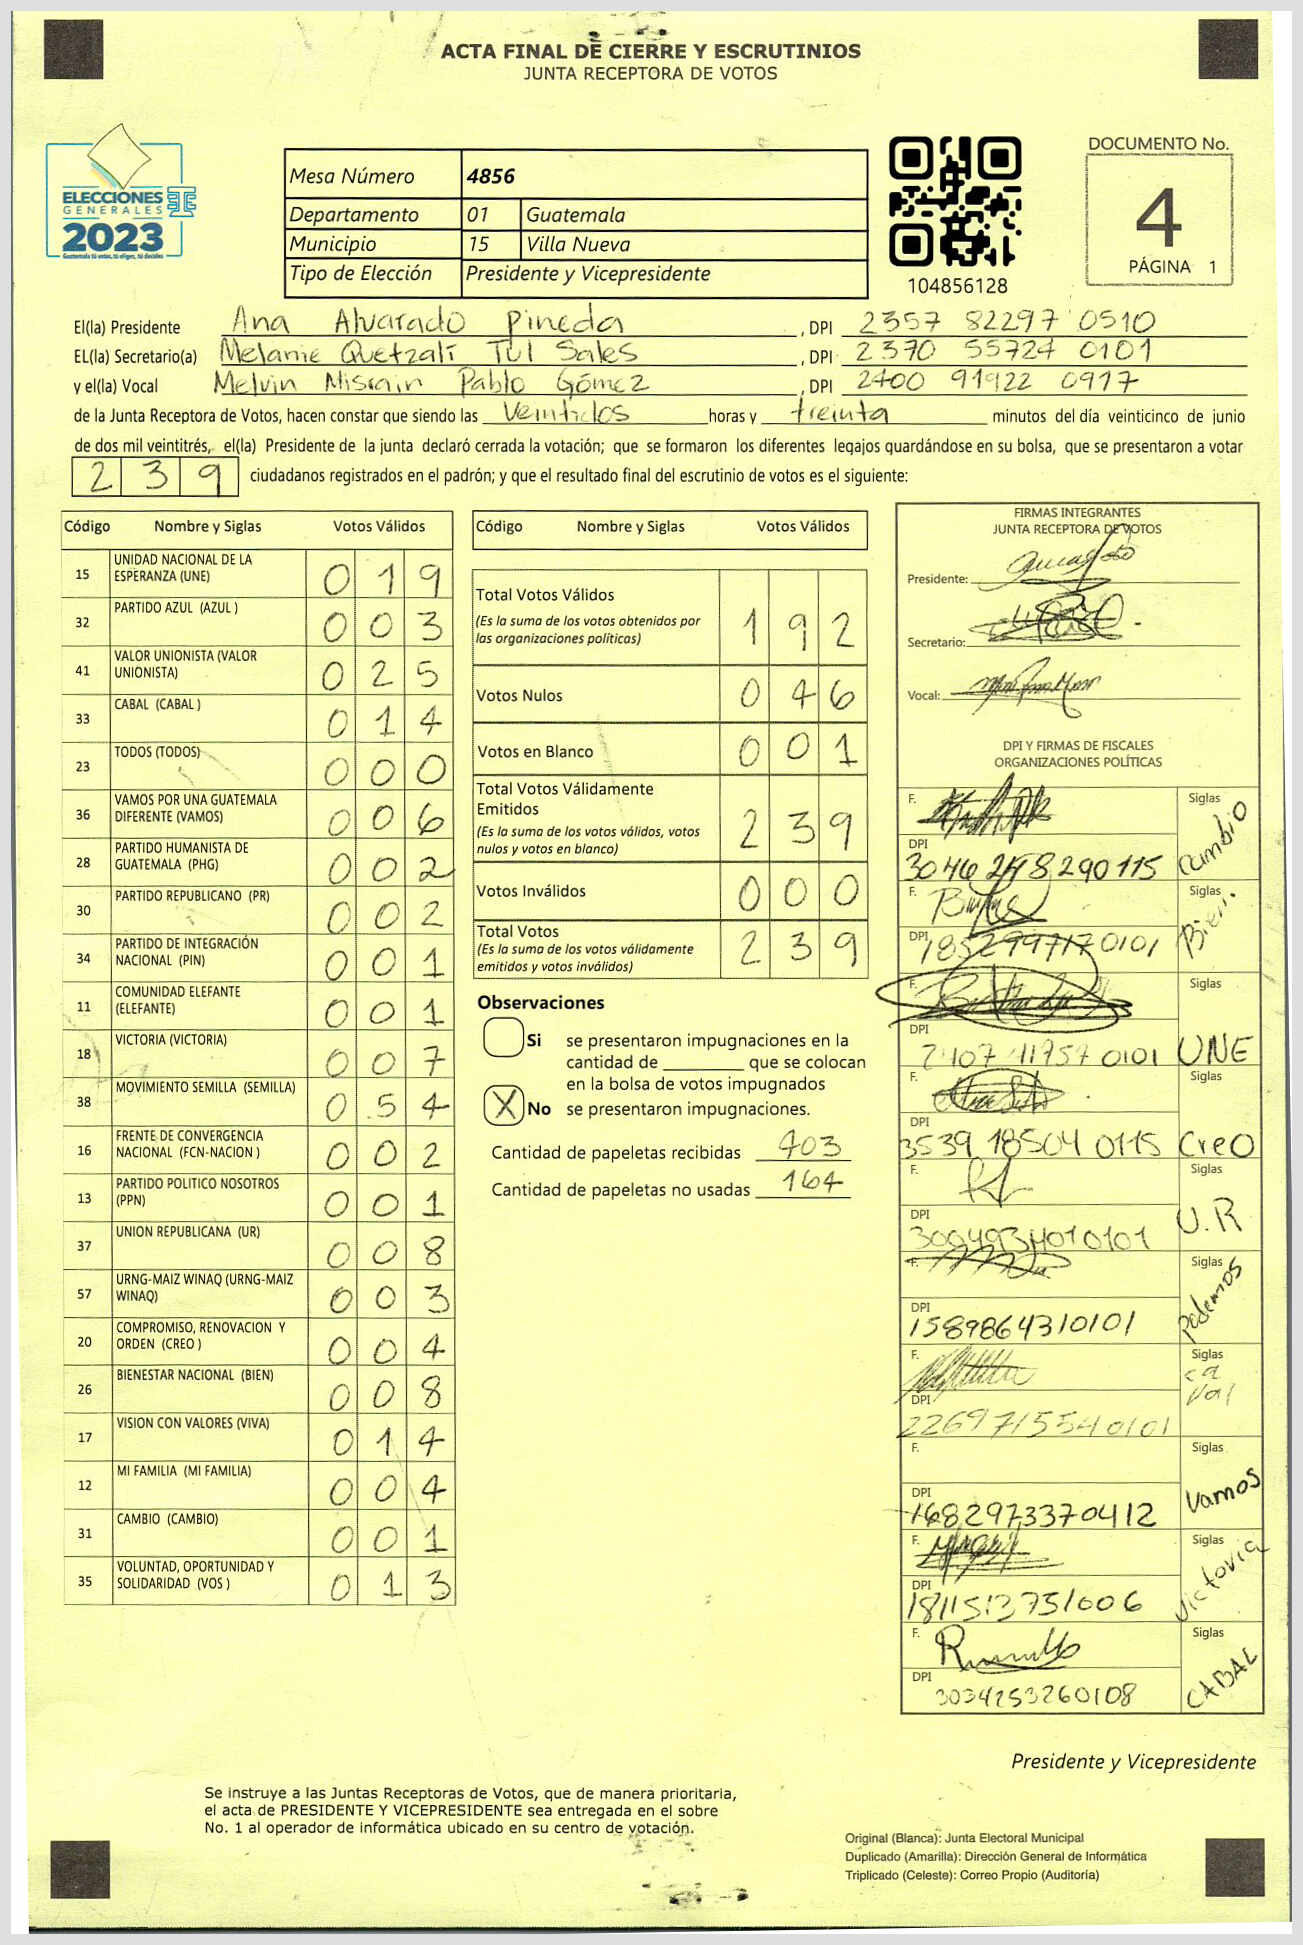 ACTA FINAL DE CIERRE Y ESCRUTINIOS
JUNTA RECEPTORA DE VOTOS
ELECCIONES
GENERALES
2023
Guatemala tú votas, tú eliges, tú decides
Mesa Número 4856
Departamento 01 Guatemala
Municipio 15 Villa Nueva
Tipo de Elección Presidente y Vicepresidente
104856128
DOCUMENTO No.
4
PÁGINA 1
El(la) Presidente Ana Alvarado Pineda, DPI 2357 82297 0510
EL(la) Secretario(a) Melanie Quetzalí Tul Sales, DPI 2370 55724 0101
y el(la) Vocal Melvin Misrain Pablo Gómez, DPI 2400 91922 0917
de la Junta Receptora de Votos, hacen constar que siendo las Veintidos horas y treinta minutos del día veinticinco de junio
de dos mil veintitrés, el(la) Presidente de la junta declaró cerrada la votación; que se formaron los diferentes legajos guardándose en su bolsa, que se presentaron a votar
239 ciudadanos registrados en el padrón; y que el resultado final del escrutinio de votos es el siguiente:
Código Nombre y Siglas Votos Válidos
15 UNIDAD NACIONAL DE LA ESPERANZA (UNE) 019
32 PARTIDO AZUL (AZUL ) 003
41 VALOR UNIONISTA (VALOR UNIONISTA) 025
33 CABAL (CABAL ) 014
23 TODOS (TODOS) 000
36 VAMOS POR UNA GUATEMALA DIFERENTE (VAMOS) 006
28 PARTIDO HUMANISTA DE GUATEMALA (PHG) 002
30 PARTIDO REPUBLICANO (PR) 002
34 PARTIDO DE INTEGRACIÓN NACIONAL (PIN) 001
11 COMUNIDAD ELEFANTE (ELEFANTE) 001
18 VICTORIA (VICTORIA) 007
38 MOVIMIENTO SEMILLA (SEMILLA) 054
16 FRENTE DE CONVERGENCIA NACIONAL (FCN-NACION ) 002
13 PARTIDO POLITICO NOSOTROS (PPN) 001
37 UNION REPUBLICANA (UR) 008
57 URNG-MAIZ WINAQ (URNG-MAIZ WINAQ) 003
20 COMPROMISO, RENOVACION Y ORDEN (CREO ) 004
26 BIENESTAR NACIONAL (BIEN) 008
17 VISION CON VALORES (VIVA) 014
12 MI FAMILIA (MI FAMILIA) 004
31 CAMBIO (CAMBIO) 001
35 VOLUNTAD, OPORTUNIDAD Y SOLIDARIDAD (VOS ) 013
Código Nombre y Siglas Votos Válidos
Total Votos Válidos 192
(Es la suma de los votos obtenidos por
las organizaciones políticas)
Votos Nulos 046
Votos en Blanco 001
Total Votos Válidamente
Emitidos 239
(Es la suma de los votos válidos, votos
nulos y votos en blanco)
Votos Inválidos 000
Total Votos 239
(Es la suma de los votos válidamente
emitidos y votos inválidos)
Observaciones
Si se presentaron impugnaciones en la
cantidad de ________ que se colocan
en la bolsa de votos impugnados
X No se presentaron impugnaciones.
Cantidad de papeletas recibidas 403
Cantidad de papeletas no usadas 164
FIRMAS INTEGRANTES
JUNTA RECEPTORA DE VOTOS
Presidente:
Secretario:
Vocal:
DPI Y FIRMAS DE FISCALES
ORGANIZACIONES POLÍTICAS
F. Siglas Cambio
DPI
F. Siglas Bien
DPI 1852997170101
F. Siglas UNE
DPI 2407 41757 0101
F. Siglas CreO
DPI 3539 18504 0115
F. Siglas U.R
DPI
F. Siglas podemos
DPI 1589864310101
F. Siglas ca val
DPI 2269715540101
F. Siglas Vamos
DPI 1682973370412
F. Siglas Victoria
DPI 1811513751006
F. Siglas CABAL
DPI 3034253260108
Presidente y Vicepresidente
Se instruye a las Juntas Receptoras de Votos, que de manera prioritaria,
el acta de PRESIDENTE Y VICEPRESIDENTE sea entregada en el sobre
No. 1 al operador de informática ubicado en su centro de votación.
Original (Blanca): Junta Electoral Municipal
Duplicado (Amarilla): Dirección General de Informática
Triplicado (Celeste): Correo Propio (Auditoría)